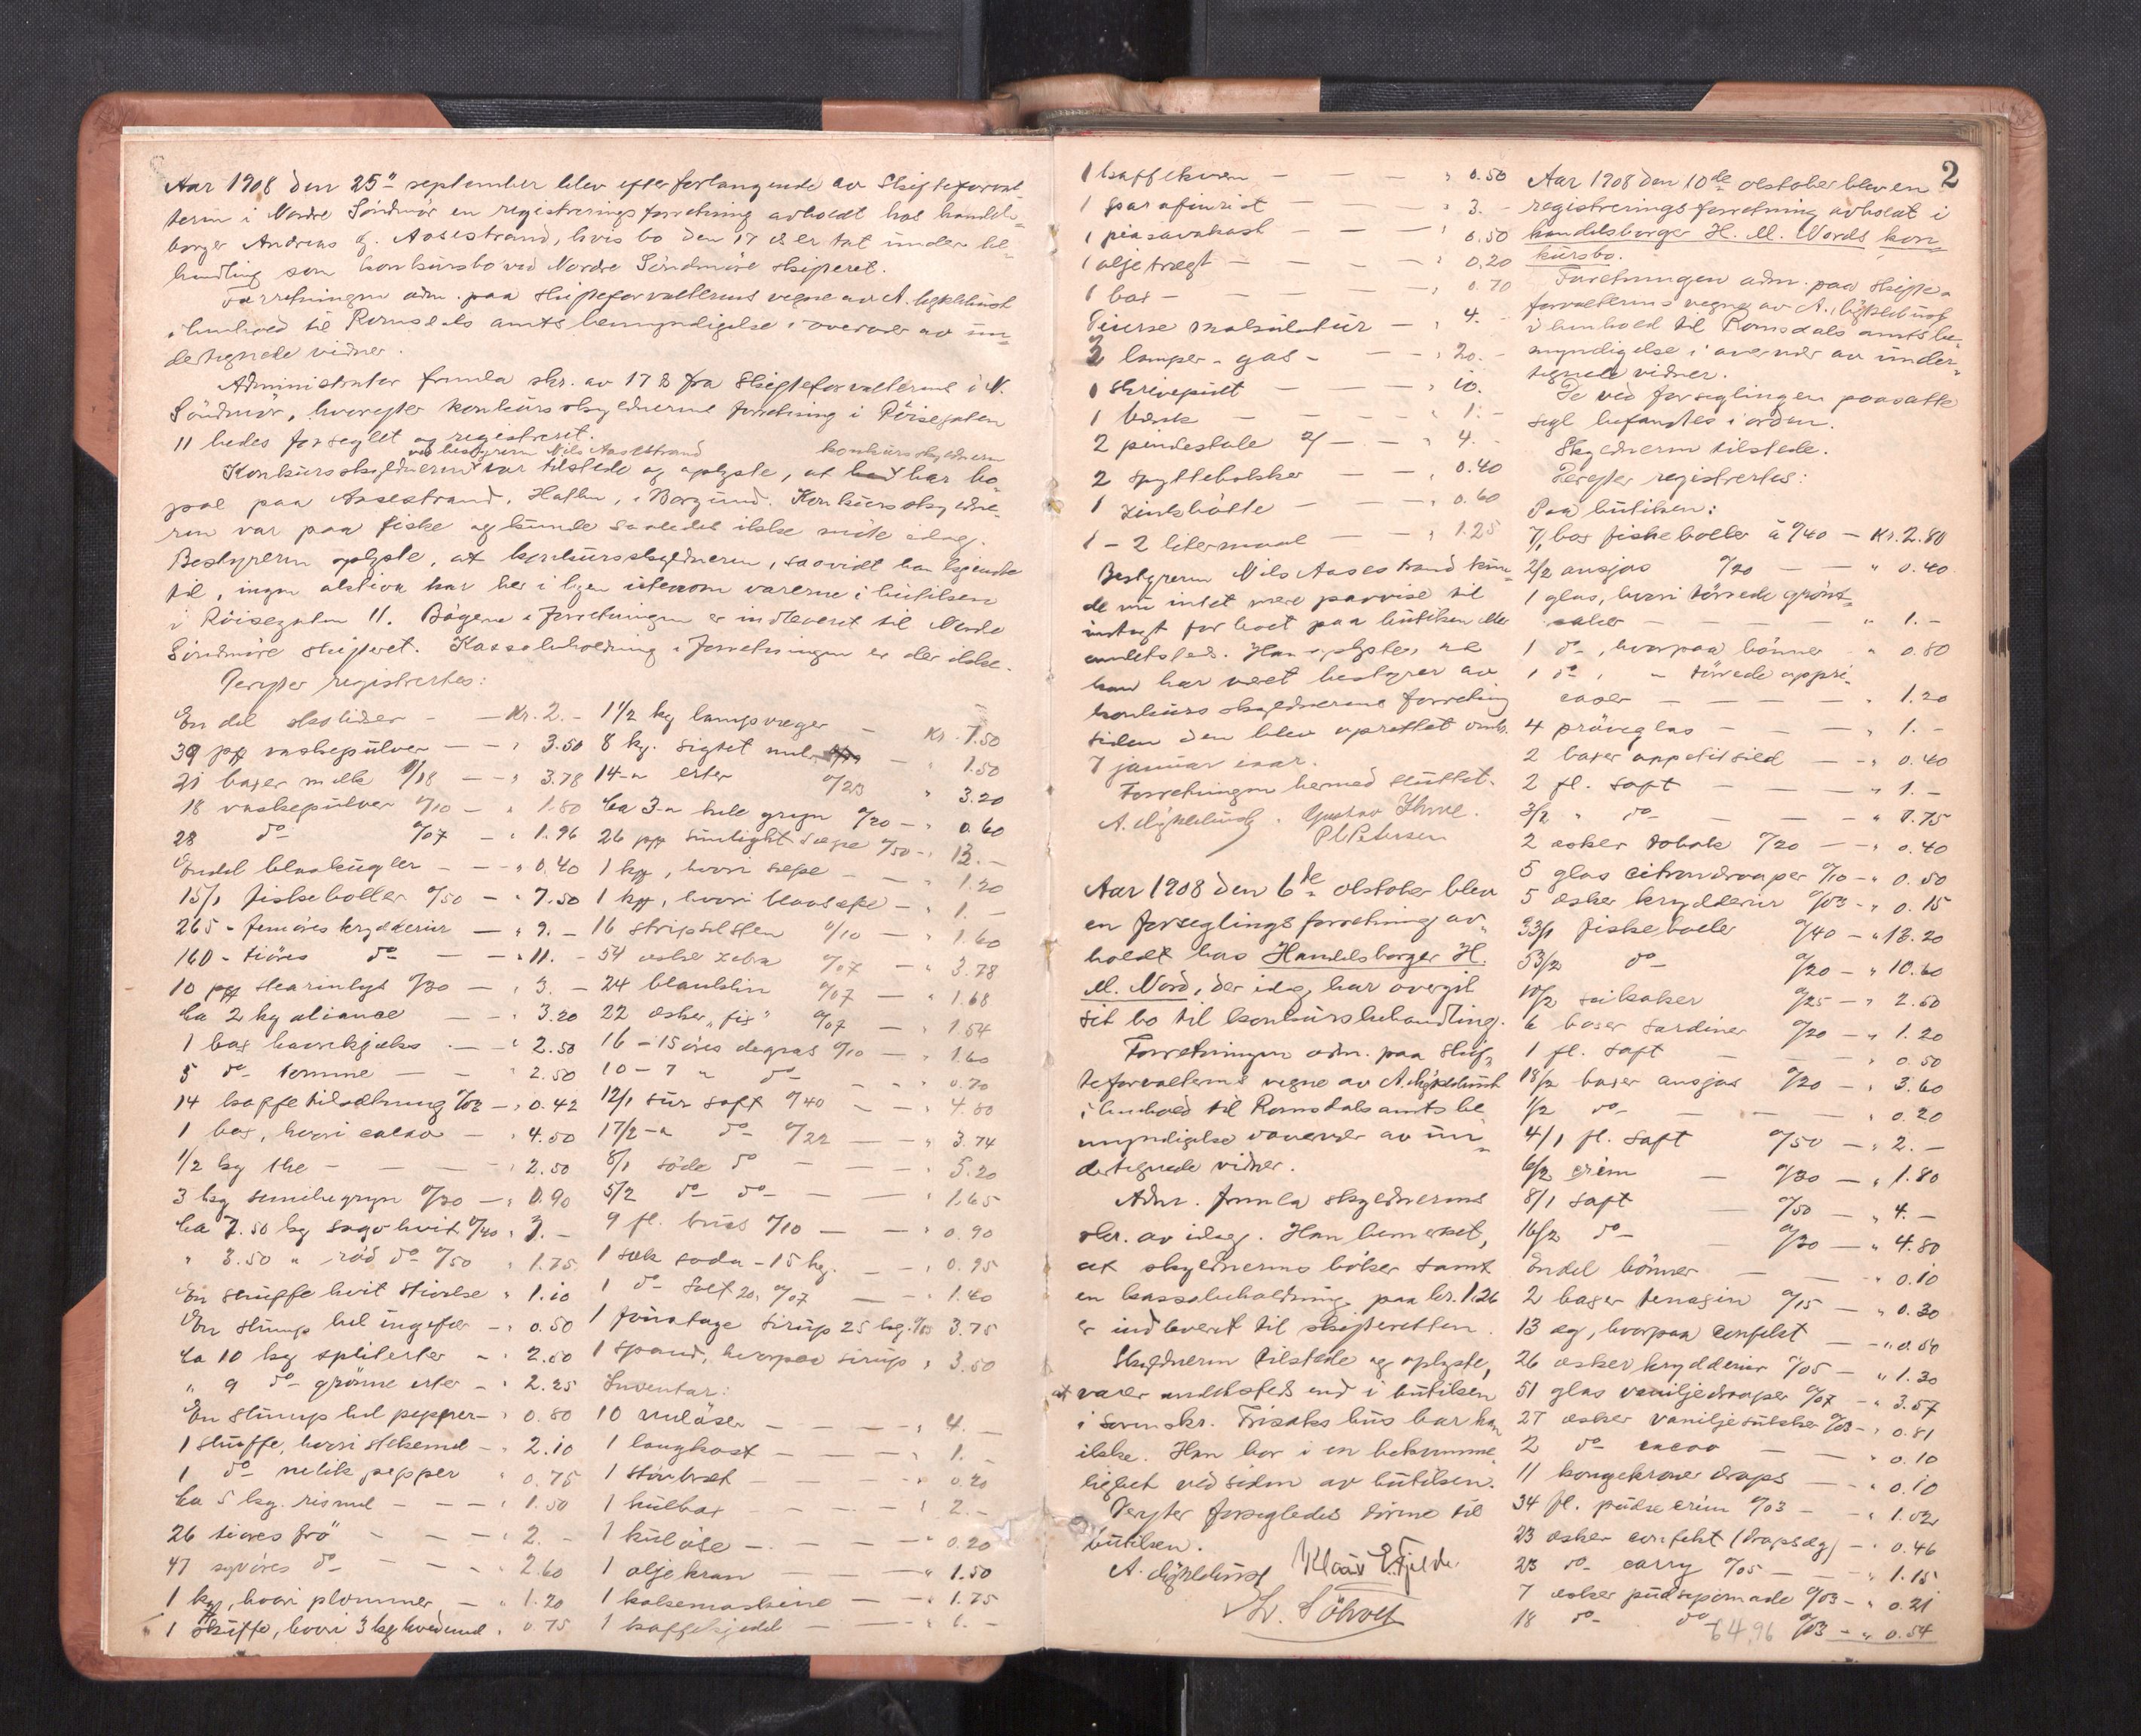 Aar 1908 den 25de september blev efter forlangende av Skifteforval-
teren i Nordre Söndmör en registreringsforretning avholdt hos handels-
borger Andreas J. Aasestrand, hvis bo den 17 ds er tat under be-
handling som konkursbo ved Nordre Söndmöre skifteret.
Forretningen adm. paa skifteforvalterens vegne av A. Myklebust
i henhold til Romsdals amts bemyndigelse i overvær av un-
dertegnede vidner.
Administrator fremla skr. av 17 ds fra Skifteforvalteren i N.
Söndmör, hvorefter konkursskyldnerens forretning i Röisegaten
11 bedes forseglet og registreret.
ved bestyreren Nils Aasestrand konkursskyldneren
Konkursskyldneren var tilstede og oplyste, at har bo-
pæl paa Aasestrand, Hatlen, i Borgund. Konkursskyldne-
ren var paa fiske og kunde saaledes ikke möte idag.
Bestyreren oplyste, at konkursskyldneren, saavidt han kjendte
til, ingen aktiva har her i byen utenom varerne i butikken
i Röisegaten 11. Bögerne i forretningen er indleveret til Nordre
Söndmöre skifteret. Kassabeholdning i forretningen er der ikke.
Derefter registrertes:
En del skolisser - - Kr. 2.-
39 pk vaskepulver - - " 3.50
21 baxer melk 0/18 - - " 3.78
18 vaskepulver 0/10 - " 1.80
28 do 0/07 - " 1.96
Endel blaakugler - - " 0.40
15/1 fiskeboller 0/50 - " 7.50
265 - femöres krydderier - " 9.-
160 - tiöres do - - " 11.-
10 pk stearinlys 0/30 - " 3.-
Ca 2 kg aliance - - " 3.20
1 bax havrekjæks - - " 2.50
5 do tomme - - " 2.50
14 kaffetilsætning 0/03 - " 0.42
1 bax, hvori cacao - " 4.50
1/2 kg the - - - " 2.50
3 kg semulegryn 0/30 - " 0.90
Ca 7.50 kg sago hvit 0/40 " 3.-
" 3.50 " röd do 0/50 " 1.75
En skuffe hvit stivelse " 1.10
En slump hel ingefær - " 0.50
Ca 10 kg spliterter - " 2.50
" 9 do grönne erter - " 2.25
En slump hel pepper - " 0.80
1 skuffe, hvori stekemel - " 2.10
1 do nelik pepper " 0.75
Ca 5 kg. rismel - - - " 1.50
26 tiöres frö - - - " 2.-
47 syvöres do - - - " 2.60
1 kg, hvori plommer - " 1.20
1 skuffe, hvori 3 kg hvedemel " 0.75
1 1/2 kg lampvæger - Kr. 7.50
8 kg. sigtet mel - " 1.50
14 - " erter 0/23 " 3.20
Ca 3 - " hele gryn 0/20 - " 0.60
26 pk sunlight sæpe 0/50 - " 13.-
1 kg, hvori sæpe - - " 1.20
1 kg, hvori blaasæpe - " 1.-
16 stripsesten 0/10 - " 1.60
54 æsker zebra 0/07 - " 3.78
24 blanklin 0/07 - " 1.68
22 æsker "fix" 0/07 - " 1.54
16 - 15 öres degras 0/10 - " 1.60
10 - 7 " do - - " 0.70
12/1 sur saft 0/40 - - " 4.80
17/2 - " do 0/22 - - " 3.74
8/1 söde do - - - " 5.20
5/2 do do - - " 1.65
9 fl. brus 0/10 - - " 0.90
1 sæk soda - 15 kg. - - " 0.95
1 do salt 20 0/07 - - " 1.40
1 fustage sirup 25 kg. 0/15 3.75
1 spand, hvorpaa sirup " 3.50
Inventar:
10 melöser - - - - " 4.-
1 langkost - - - - " 1.-
1 stövbræt - - - - " 0.20
1 kulbox - - - - " 2.-
1 kulöse - - - - " 0.20
1 oljekran - - - " 1.50
1 kaksemaskine - - " 1.75
1 kaffekjedel - - " 6.-
1 kaffekvern - - - " 0.50
1 parafinrist - - - " 3.-
1 piasavakost - - - " 0.50
1 oljetragt - - - - " 0.20
1 bax - - - - " 0.70
Diverse makulatur - " 4.-
2 lamper - gas - - - " 20.-
1 skrivepult - - - " 10.-
1 bænk - - - - " 1.-
2 pindestole 2/ - - " 4.-
2 spyttebakker - - " 0.40
1 zinkbötte - - - " 0.60
1 - 2 litermaal - - " 1.25
Bestyreren Nils Aasestrand kun-
de nu intet mere paavise til
indtægt for boet paa butikken eller
andetsteds. Han oplyste, at
han har været bestyrer av
konkursskyldnerens forretning
siden den blev oprettet omkr.
7 januar iaar.
Forretningen hermed sluttet.
A. Myklebust. Gustav
P. Petersen
Aar 1908 den 6te oktober blev
en forseglingsforretning av-
holdt hos Handelsborger H.
M. Nord, der idag har overgit
sit bo til konkursbehandling.
Forretningen adm. paa skif-
teforvalterens vegne av A. Myklebust
i henhold til Romsdals amts be-
myndigelse i overvær av un-
dertegnede vidner.
Adm. fremla skyldnerens
skr. av idag. Han bemerket,
at skyldnerens böker samt
en kassabeholdning paa kr. 1.26
er indleveret til skifteretten.
Skyldneren tilstede og oplyste,
at varer andetsteds end i butikken
i Sven skr. Frisaks hus har han
ikke. Han bor i en bekvemme-
lighet ved siden av butikken.
Derefter forsegledes dörene til
butikken.
A. Myklebust Klaus E. Fjelde
L. Söholt
2
Aar 1908 den 10de oktober blev en
registreringsforretning avholdt i
handelsborger H. M. Nords kon-
kursbo.
Forretningen adm. paa skifte-
forvalterens vegne av A. Myklebust
i henhold til Romsdals amts be-
myndigelse i overvær av under-
tegnede vidner.
De ved forseglingen paasatte
segl befandtes i orden.
Skyldneren tilstede.
Derefter registrertes:
Paa butikken:
7/1 bax fiskeboller à 0/40 - Kr. 2.80
2/2 ansjos 0/20 - - " 0.40
1 glas, hvori törrede grönt-
saker - - - - " 1.-
1 do, hvorpaa bönner - " 0.80
1 do, " törrede appri-
caser - - - - " 1.20
4 pröveglas - - - " 1.-
2 baxer appetitsild - - " 0.40
2 fl. saft - - - - " 1.-
3/2 " do - - - " 0.75
2 æsker tobak 0/20 - - " 0.40
5 glas citrondraaper 0/10 - " 0.50
5 æsker krydderier 0/03 - " 0.15
33/1 fiskeboller 0/40 - " 13.20
53/2 do 0/20 - " 10.60
10/2 seikaker 0/25 - " 2.50
6 baxer sardiner 0/20 - " 1.20
1 fl. saft - - - " 0.50
18/2 baxer ansjos 0/20 - " 3.60
1/2 do - - - " 0.20
4/1 fl. saft 0/50 - " 2.-
6/2 crèm - 0/30 - " 1.80
8/1 saft - 0/50 - " 4.-
16/2 do - 0/30 - " 4.80
Endel bönner - - - " 0.10
2 baxer terragin 0/15 - " 0.30
13 æg, hvorpaa confekt - - " 0.50
26 æsker krydderier 0/05 - " 1.30
51 glas vaniljedraaper 0/07 - " 3.57
27 æsker vaniljesukker 0/03 - " 0.81
2 do cacao - - " 0.10
11 kongekroner draps - " 0.10
34 fl. pudsecrèm 0/03 - " 1.02
23 æsker confekt (drapsæg) - " 0.46
23 do carry 0/05 - - " 1.15
7 æsker pudsepomade 0/03 - " 0.21
18 do do 0/03 - " 0.54
64,96